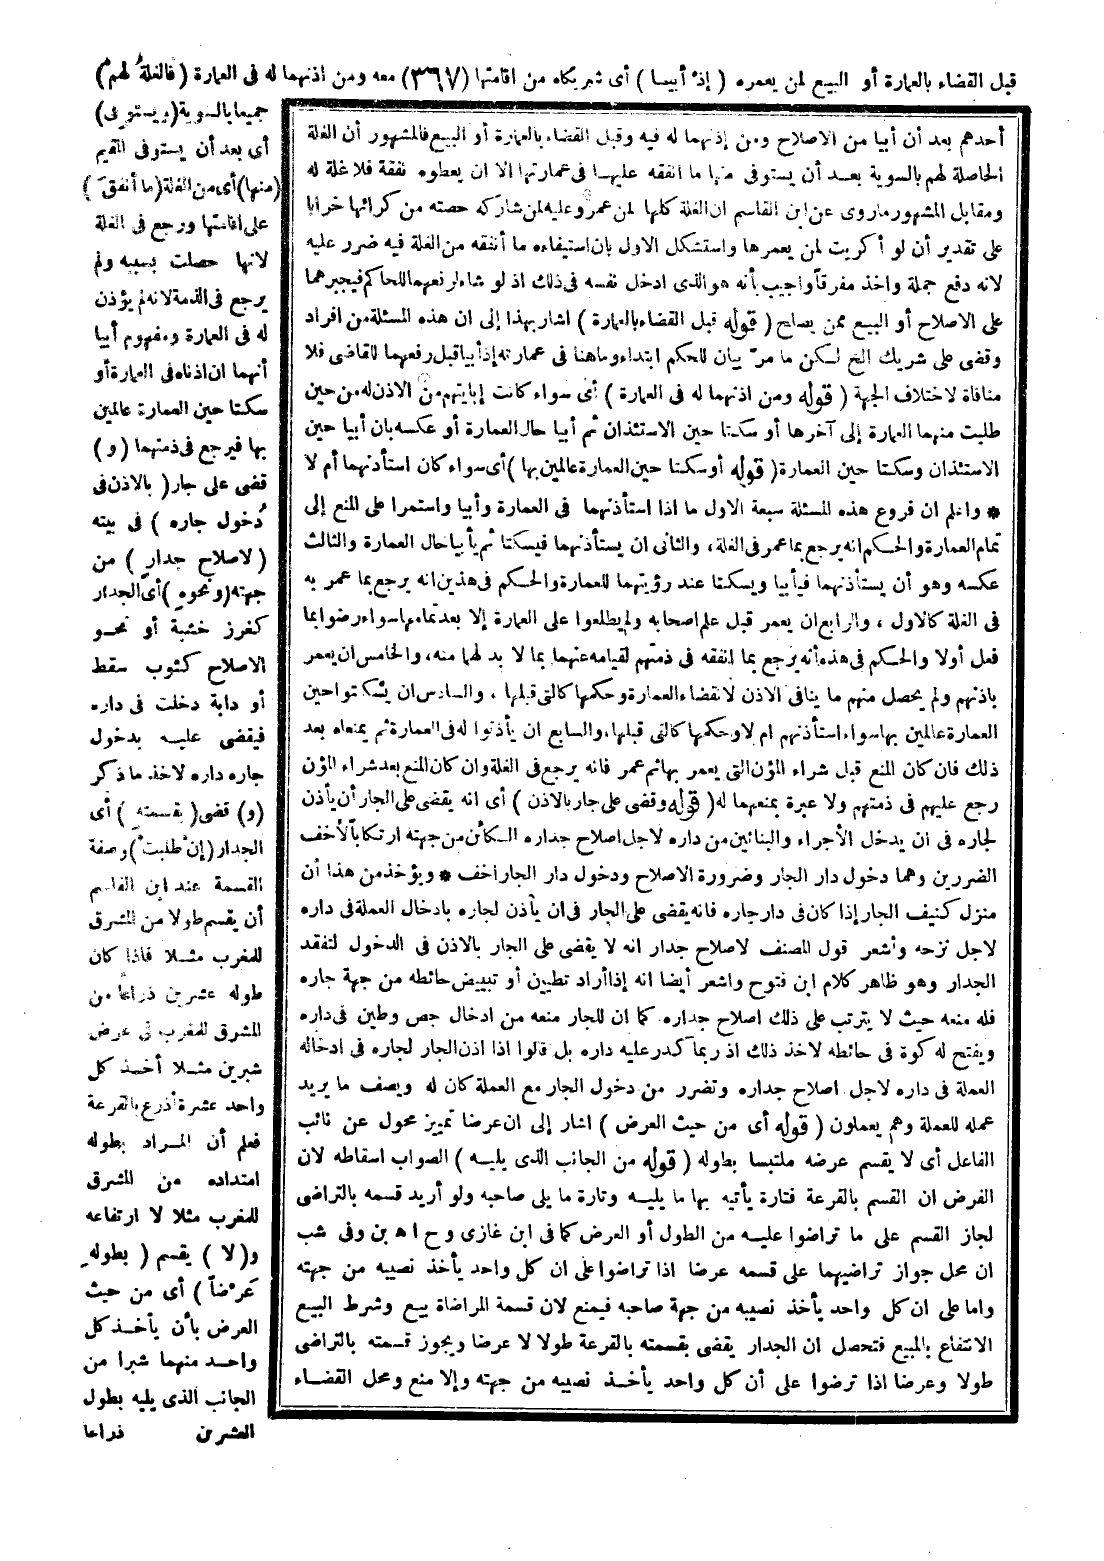 قبل القضاء بالعمارة أو البيع لمن يعمره (إذ أبيا) أى شريكاه من اقامتها (٣٦٧) معه ومن اذنهما له فى العمارة (فالغلة لهم)
جميعا بالسوية (ويستوفى)
أى بعد أن يستوفى المقيم
(منها) أى من الغلة (ما أنفق)
على اقامتها ورجع فى الغلة
لانها حصلت بسببه ولم
يرجع فى الذمة لانه لم يؤذن
له فى العمارة ومفهوم أبيا
أنهما ان اذناه فى العمارة أو
سكتا حين العمارة عالمين
بها فيرجع فى ذمتهما (و)
قضى على جار (بالاذن فى
دخول جاره) فى بيته
(لاصلاح جدار) من
جهته (ونحوه) أى الجدار
كغرز خشبة أو نحو
الاصلاح كثوب سقط
أو دابة دخلت فى داره
فيقضى عليه بدخول
جاره داره لاخذ ما ذكر
(و) قضى (بقسمته) أى
الجدار (إن طلبت) وصفة
القسمة عند ابن القاسم
أن يقسم طولا من المشرق
للمغرب مثلا فاذا كان
طوله عشرين ذراعا من
المشرق للمغرب فى عرض
شبرين مثلا أخذ كل
واحد عشرة أذرع بالقرعة
فعلم أن المراد بطوله
امتداده من المشرق
للمغرب مثلا لا ارتفاعه
و(لا) يقسم (بطوله
عرضا) أى من حيث
العرض بأن يأخذ كل
واحد منهما شبرا من
الجانب الذى يليه بطول
العشرين ذراعا
أحدهم بعد أن أبيا من الاصلاح ومن إذنهما له فيه وقبل القضاء بالعمارة أو البيع فالمشهور أن الغلة
الحاصلة لهم بالسوية بعد أن يستوفى منها ما انفقه عليها فى عمارتها الا ان يعطوه نفقة فلا غلة له
ومقابل المشهور ماروى عن ابن القاسم ان الغلة كلها لمن عمر وعليه لمن شاركه حصته من كرائها خرابا
على تقدير أن لو أكريت لمن يعمرها واستشكل الاول بان استيفاءه ما أنفقه من الغلة فيه ضرر عليه
لانه دفع جملة واخذ مفرقا واجيب بأنه هو الذى ادخل نفسه فى ذلك اذ لو شاء لرفعهما للحاكم فيجبرهما
على الاصلاح أو البيع ممن يصلح (قوله قبل القضاء بالعمارة) اشار بهذا إلى ان هذه المسئلة من افراد
وقضى على شريك الخ لكن ما مر بيان للحكم ابتداء وما هنا فى عمارته إذ أبيا قبل رفعهما للقاضى فلا
منافاة لاختلاف الجهة (قوله ومن اذنهما له فى العمارة) أى سواء كانت إبايتهم من الاذن له من حين
طلبت منهما العمارة إلى آخرها أو سكتا حين الاستئذان ثم أبيا حال العمارة أو عكسه بان أبيا حين
الاستئذان وسكتا حين العمارة (قوله أو سكتا حين العمارة عالمين بها) أى سواء كان استأذنهما أم لا
* واعلم ان فروع هذه المسئلة سبعة الاول ما اذا استأذنهما فى العمارة وأبيا واستمرا على المنع إلى
تمام العمارة والحكم انه يرجع بما عمر فى الغلة، والثانى ان يستأذنهما فيسكتا ثم يأبيا حال العمارة والثالث
عكسه وهو أن يستأذنهما فيأبيا ويسكتا عند رؤيتهما للعمارة والحكم فى هذين انه يرجع بما عمر به
فى الغلة كالاول، والرابع ان يعمر قبل علم اصحابه ولم يطلعوا على العمارة إلا بعد تمامها سواء رضوا بما
فعل أولا والحكم فى هذه أنه يرجع بما انفقه فى ذمتهم لقيامه عنهما بما لا بد لهما منه، والخامس ان يعمر
باذنهم ولم يحصل منهم ما ينافى الاذن لانقضاء العمارة وحكمها كالتى قبلها، والسادس ان يسكتوا حين
العمارة عالمين بها سواء استأذنهم ام لا وحكمها كالتى قبلها، والسابع ان يأذنوا له فى العمارة ثم يمنعاه بعد
ذلك فان كان المنع قبل شراء المؤن التى يعمر بها ثم عمر فانه يرجع فى الغلة وان كان المنع بعد شراء المؤن
رجع عليهم فى ذمتهم ولا عبرة بمنعهما له (قوله وقضى على جار بالاذن) أى انه يقضى على الجار أن يأذن
لجاره فى ان يدخل الأجراء والبنائين من داره لاجل اصلاح جداره الكائن من جهته ارتكابا لأخف
الضررين وهما دخول دار الجار وضرورة الاصلاح ودخول دار الجار اخف * ويؤخذ من هذا أن
منزل كنيف الجار إذا كان فى دار جاره فانه يقضى على الجار فى ان يأذن لجاره بادخال العملة فى داره
لاجل نزحه وأشعر قول المصنف لاصلاح جدار انه لا يقضى على الجار بالاذن فى الدخول لتفقد
الجدار وهو ظاهر كلام ابن فتوح واشعر أيضا انه إذا أراد تطيين أو تبييض حائطه من جهة جاره
فله منعه حيث لا يترتب على ذلك اصلاح جداره كما ان للجار منعه من ادخال جص وطين فى داره
ويفتح له كوة فى حائطه لاخذ ذلك اذ ربما كدر عليه داره بل قالوا اذا اذن الجار لجاره فى ادخاله
العملة فى داره لاجل اصلاح جداره وتضرر من دخول الجار مع العملة كان له ويصف ما يريد
عمله للعملة وهم يعملون (قوله أى من حيث العرض) اشار إلى ان عرضا تمييز محول عن نائب
الفاعل أى لا يقسم عرضه ملتبسا بطوله (قوله من الجانب الذى يليه) الصواب اسقاطه لان
الفرض ان القسم بالقرعة فتارة يأتيه بها ما يليه وتارة ما يلى صاحبه ولو أريد قسمه بالتراضى
لجاز القسم على ما تراضوا عليه من الطول أو العرض كما فى ابن غازى وح اه بن وفى شب
ان محل جواز تراضيهما على قسمه عرضا اذا تراضوا على ان كل واحد يأخذ نصيبه من جهته
واما على ان كل واحد يأخذ نصيبه من جهة صاحبه فيمنع لان قسمة المراضاة بيع وشرط البيع
الانتفاع بالمبيع فتحصل ان الجدار يقضى بقسمته بالقرعة طولا لا عرضا ويجوز قسمته بالتراضى
طولا وعرضا اذا ترضوا على أن كل واحد يأخذ نصيبه من جهته وإلا منع ومحل القضاء